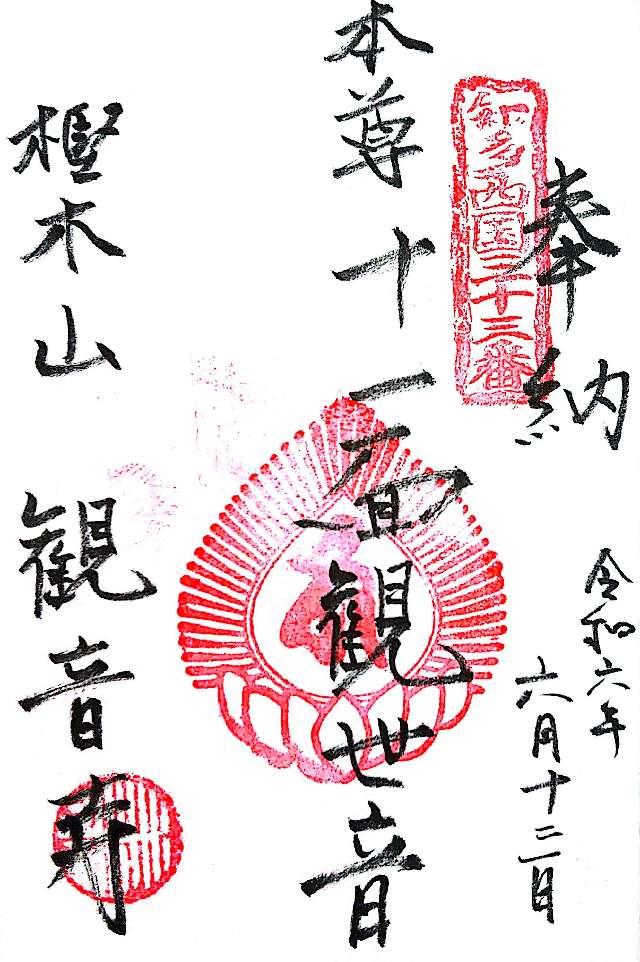 奉納
知多西国二十三番
令和六年
六月十三日
本尊十一面観世音
樫木山 観音寺